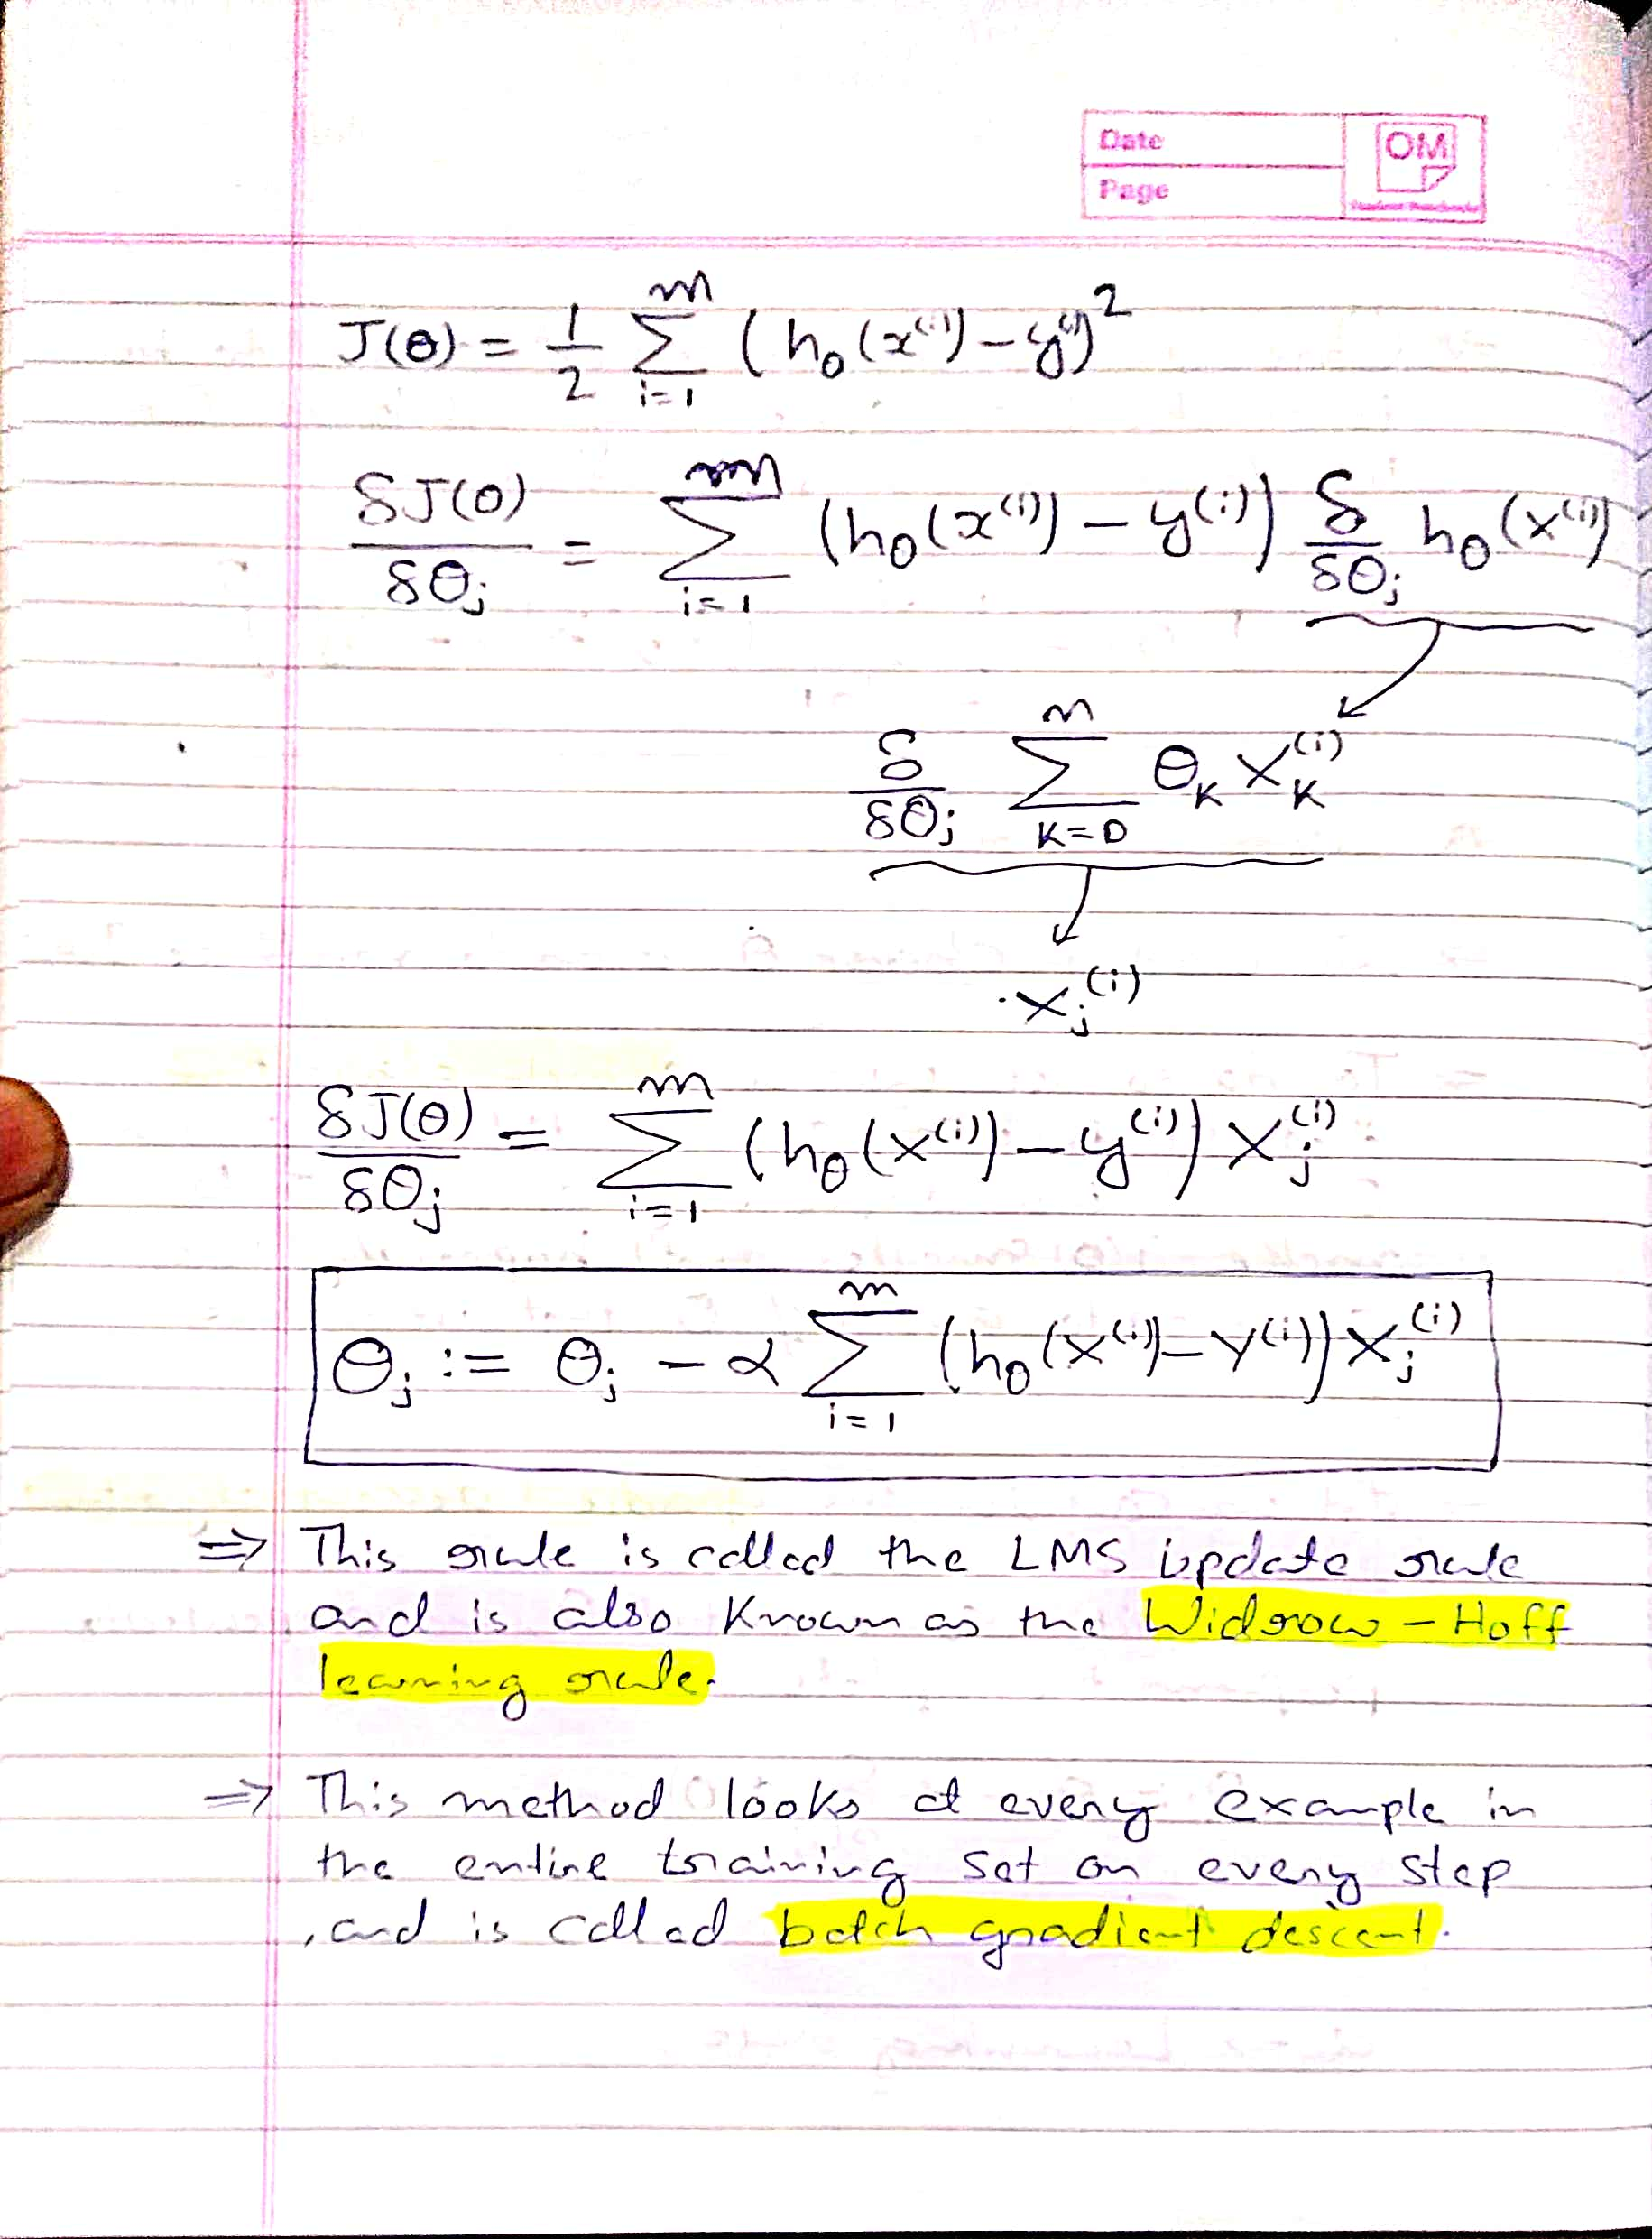 Date
OM
Page
J(θ) = 1/2 Σ_{i=1}^{m} (h_θ(x^{(i)}) - y^{(i)})^2
δJ(θ)/δθ_j = Σ_{i=1}^{m} (h_θ(x^{(i)}) - y^{(i)}) δ/δθ_j h_θ(x^{(i)})
δ/δθ_j Σ_{K=0}^{n} θ_K x_K^{(i)}
x_j^{(i)}
δJ(θ)/δθ_j = Σ_{i=1}^{m} (h_θ(x^{(i)}) - y^{(i)}) x_j^{(i)}
θ_j := θ_j - α Σ_{i=1}^{m} (h_θ(x^{(i)}) - y^{(i)}) x_j^{(i)}
⇒ This rule is called the LMS update rule
and is also known as the Widrow - Hoff
learning rule.
⇒ This method looks at every example in
the entire training set on every step
, and is called batch gradient descent.